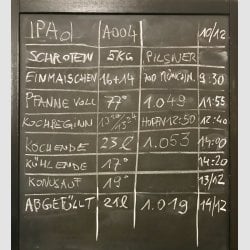 IPA A004 10/12
SCHROTEN 5KG PILSNER
EINMAISCHEN 16+14 9:30
PFANNE VOLL 77° 1.049 11:55
KOCHBEGINN HOPFEN 12:50 12:40
KOCHENDE 23l 1.053 14:00
KÜHLENDE 17° 14:20
19° 13/12
ABGEFÜLLT 21l 1.019 14/12